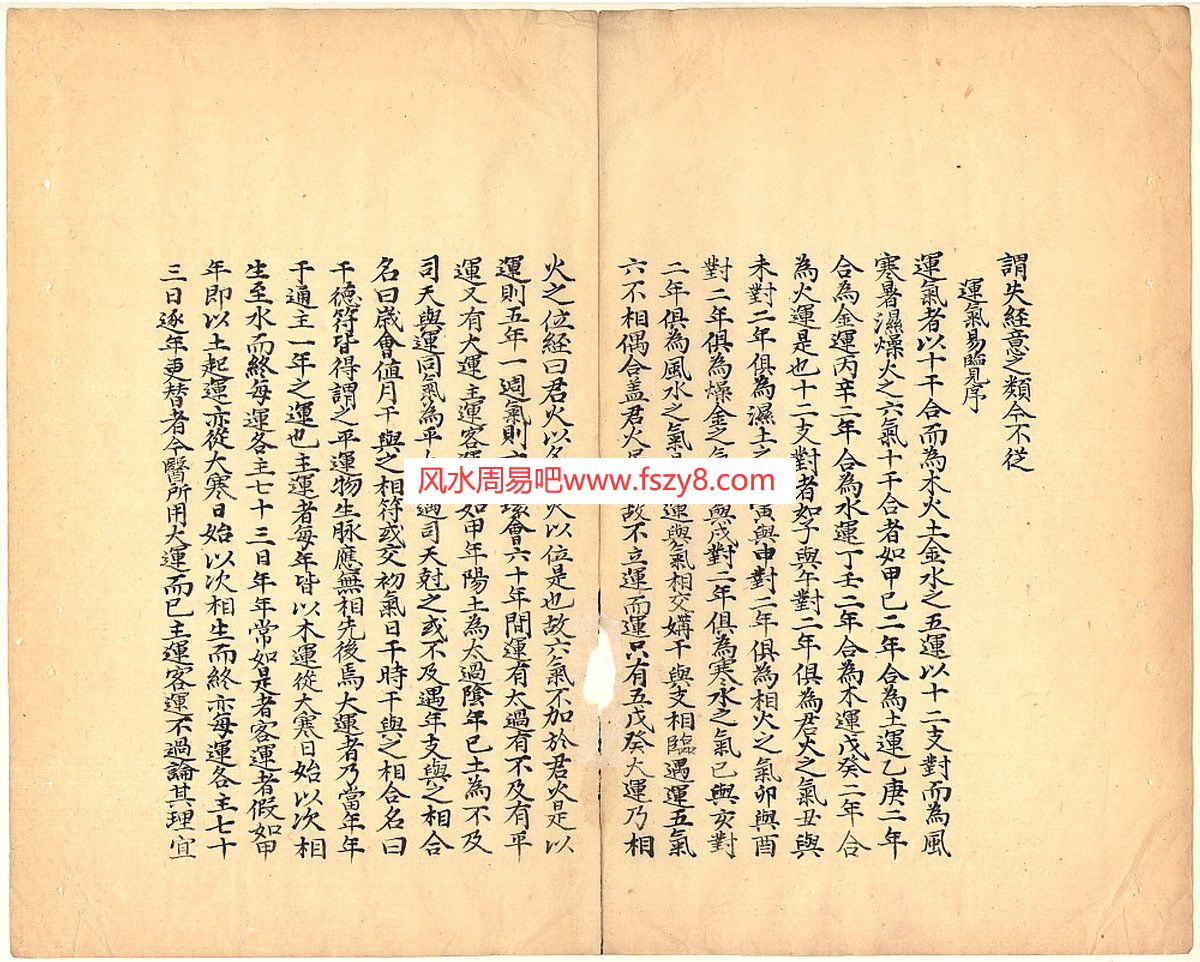 謂失経意之類今不從
運氣易臨見序
運氣者以十干合而為木火土金水之五運以十二支對而為風
寒暑濕燥火之六氣十干合者如甲巳二年合為土運乙庚二年
合為金運丙辛二年合為水運丁壬二年合為木運戊癸二年合
為火運是也十二支對者如子與午對二年俱為君火之氣丑與
未對二年俱為濕土之寅與申對二年俱為相火之氣卯與酉
對二年俱為燥金之與戌對二年俱為寒水之氣巳與亥對
二年俱為風水之氣運與氣相交媾干與支相臨遇運五氣
六不相偶合盖君火故不立運而運只有五戊癸火運乃相
火之位経曰君火以火以位是也故六氣不加於君火是以
運則五年一週氣則會六十年間運有太過有不及有平
運又有大運主運客如甲年陽土為太過陰年巳土為不及
司天與運同氣為平過司天尅之或不及遇年支與之相合
名曰歳會值月干與之相符或交初氣日干時干與之相合名曰
干德符皆得謂之平運物生脉應無相先後焉大運者乃當年年
干通主一年之運也主運者每年皆以木運從大寒日始以次相
生至水而終每運各主七十三日年年常如是者客運者假如甲
年即以土起運亦從大寒日始以次相生而終亦每運各主七十
三日逐年更替者今醫所用大運而已主運客運不過論其理宜
风水周易吧www.fszy8.com